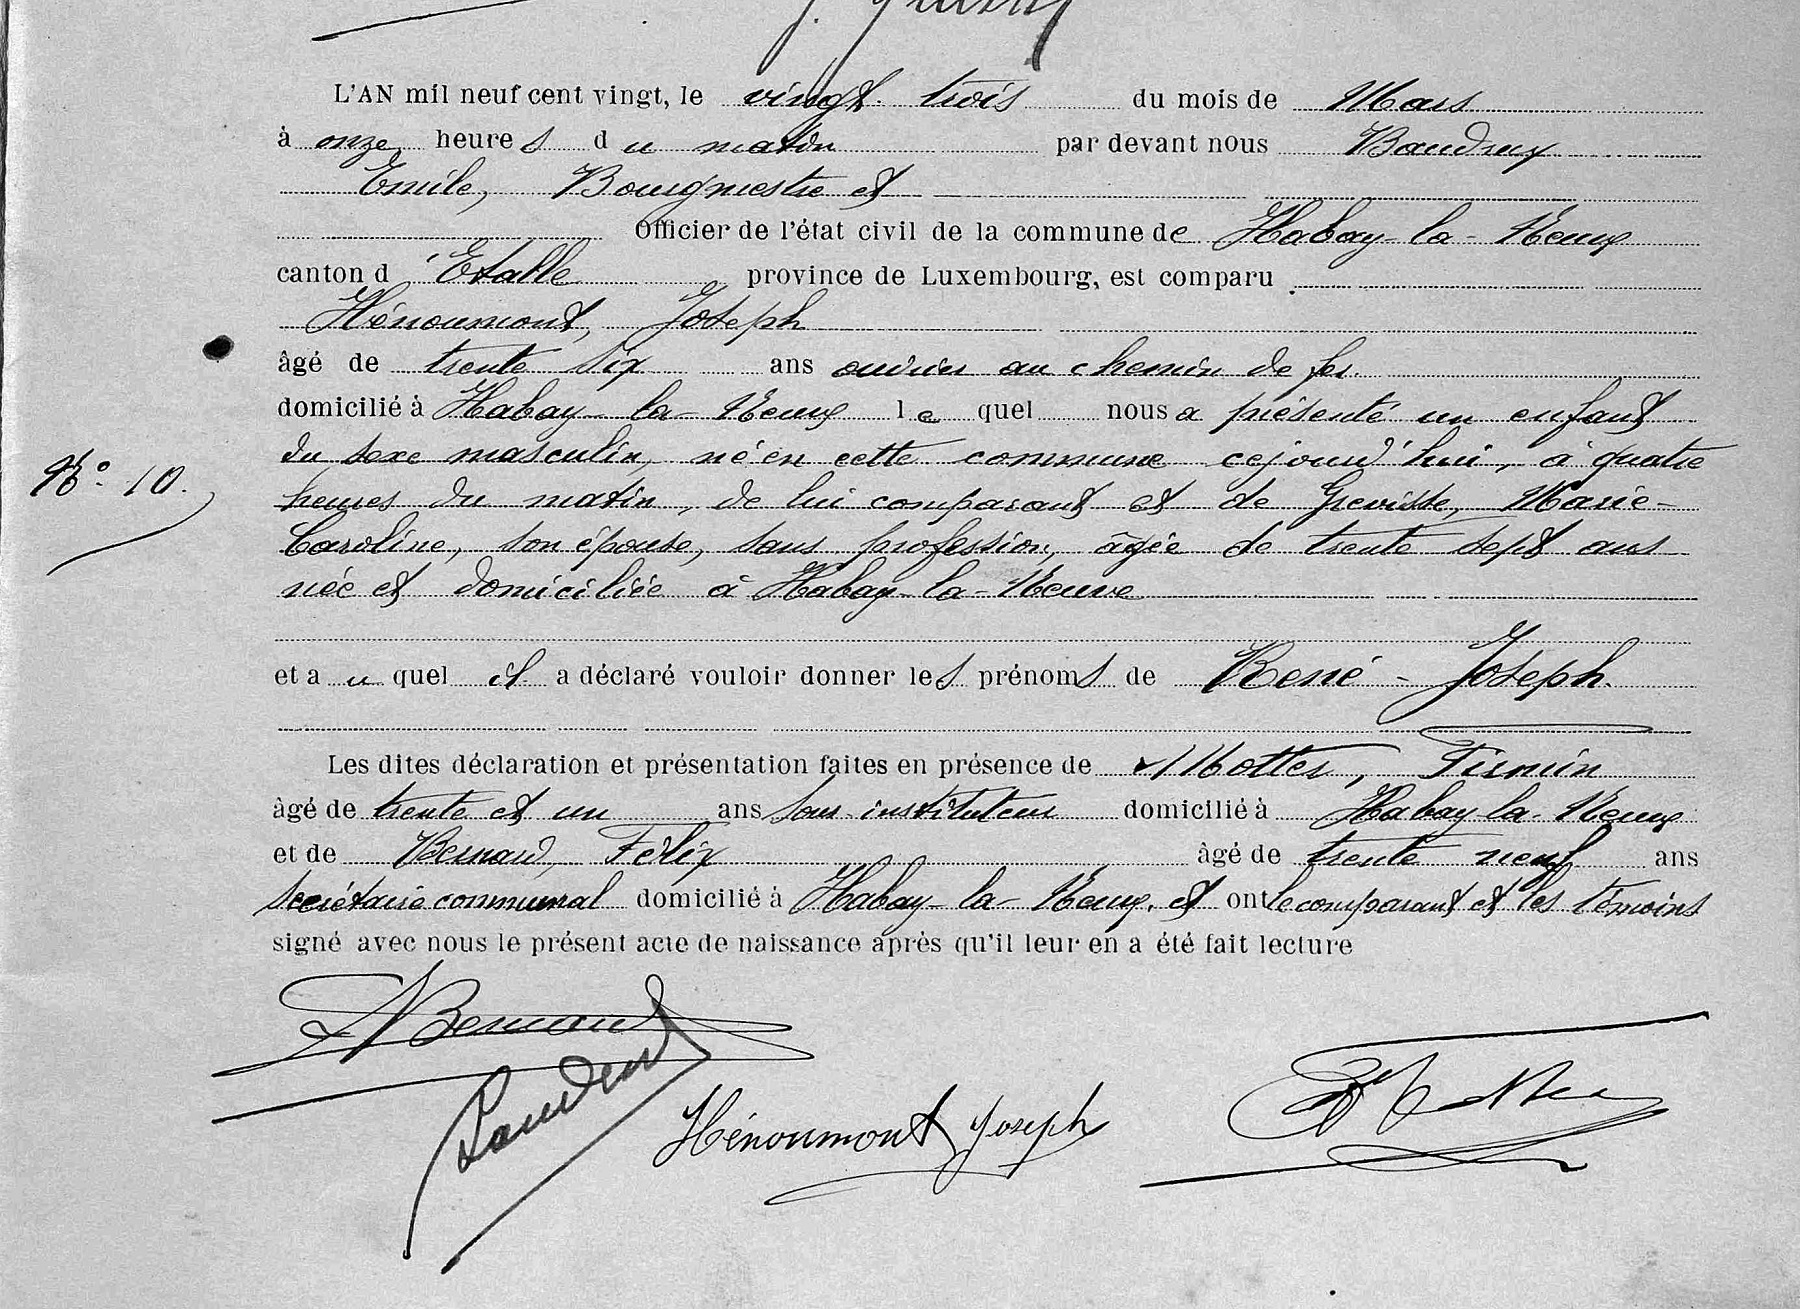 L'AN mil neuf cent vingt, le vingt-trois du mois de Mars
à onze heures du matin par devant nous Baudruy
Emile, Bourgmestre et
Officier de l'état civil de la commune de Habay-la-Neuve
canton d'Etalle province de Luxembourg, est comparu
Hénoumont, Joseph
âgé de trente six ans ouvrier au chemin de fer.
domicilié à Habay-la-Neuve lequel nous a présenté un enfant
du sexe masculin, né en cette commune cejourd'hui, à quatre
N° 10.
heures du matin, de lui comparant et de Grevisse, Marie-
Caroline, son épouse, sans profession, âgée de trente sept ans
née et domiciliée à Habay-la-Neuve
et auquel il a déclaré vouloir donner les prénoms de René-Joseph.
Les dites déclaration et présentation faites en présence de Motter, Firmin
âgé de trente et un ans sous-instituteur domicilié à Habay-la-Neuve
et de Bernard, Félix âgé de trente neuf ans
secrétaire communal domicilié à Habay-la-Neuve. et ont le comparant et les témoins
signé avec nous le présent acte de naissance après qu'il leur en a été fait lecture
Bernard
Hénoumont Joseph